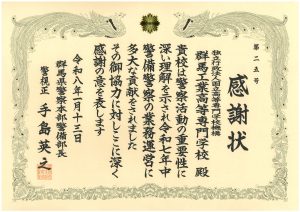 第二五号
感謝状
独立行政法人国立高等専門学校機構
群馬工業高等専門学校 殿
貴校は警察活動の重要性に
深い理解を示され令和七年中
警備警察の業務運営に
多大な貢献をされました
その御協力に対しここに深く
感謝の意を表します
令和八年一月十三日
群馬県警察本部警備部長
警視正 手島英之